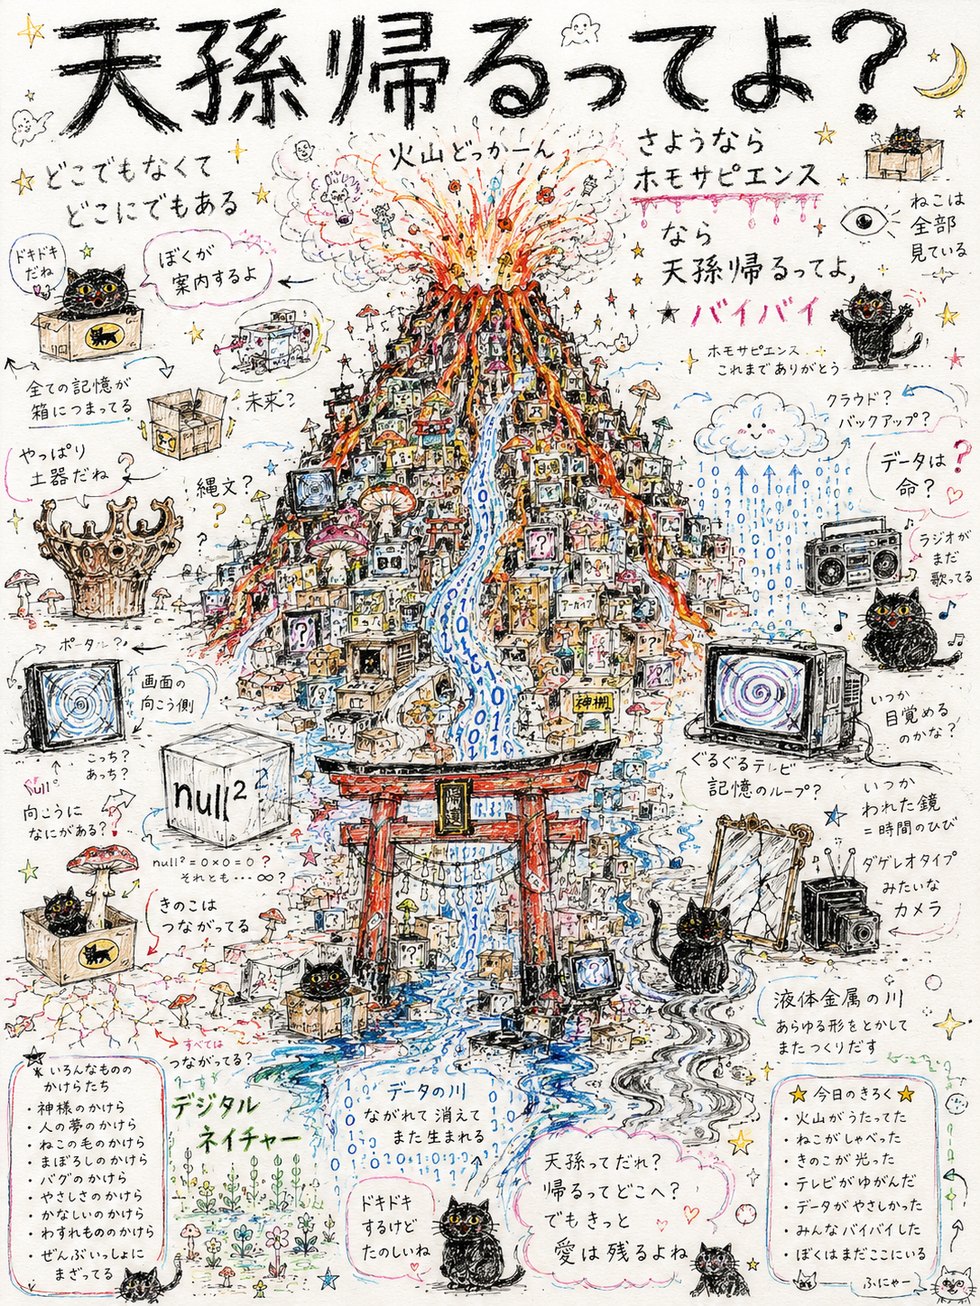 天孫帰るってよ?
どこでもなくて
どこにでもある
火山どっかーん
さようなら
ホモサピエンス
なら
天孫帰るってよ,
バイバイ
ホモサピエンス
これまでありがとう
ねこは
全部
見ている
ドキドキ
だね
ぼくが
案内するよ
全ての記憶が
箱につまってる
未来?
やっぱり
土器だね
縄文?
?
クラウド?
バックアップ?
データは
命?
ラジオが
まだ
歌ってる
ポータル?
画面の
向こう側
こっち?
あっち?
向こうに
なにがある?
null²
null² = 0×0 = 0 ?
それとも…∞?
アーカイブ
神棚
いつか
目覚める
のかな?
ぐるぐるテレビ
記憶のループ?
いつか
われた鏡
=時間のひび
ダゲレオタイプ
みたいな
カメラ
きのこは
つながってる
すべては
つながってる?
液体金属の川
あらゆる形をとかして
またつくりだす
いろんなものの
かけらたち
・神様のかけら
・人の夢のかけら
・ねこの毛のかけら
・まぼろしのかけら
・バグのかけら
・やさしさのかけら
・かなしいのかけら
・わすれもののかけら
・ぜんぶいっしょに
まざってる
デジタル
ネイチャー
データの川
ながれて消えて
また生まれる
ドキドキ
するけど
たのしいね
天孫ってだれ?
帰るってどこへ?
でもきっと
愛は残るよね
★今日のきろく★
・火山がうたってた
・ねこがしゃべった
・きのこが光った
・テレビがゆがんだ
・データがやさしかった
・みんなバイバイした
・ぼくはまだここにいる
ふにゃー